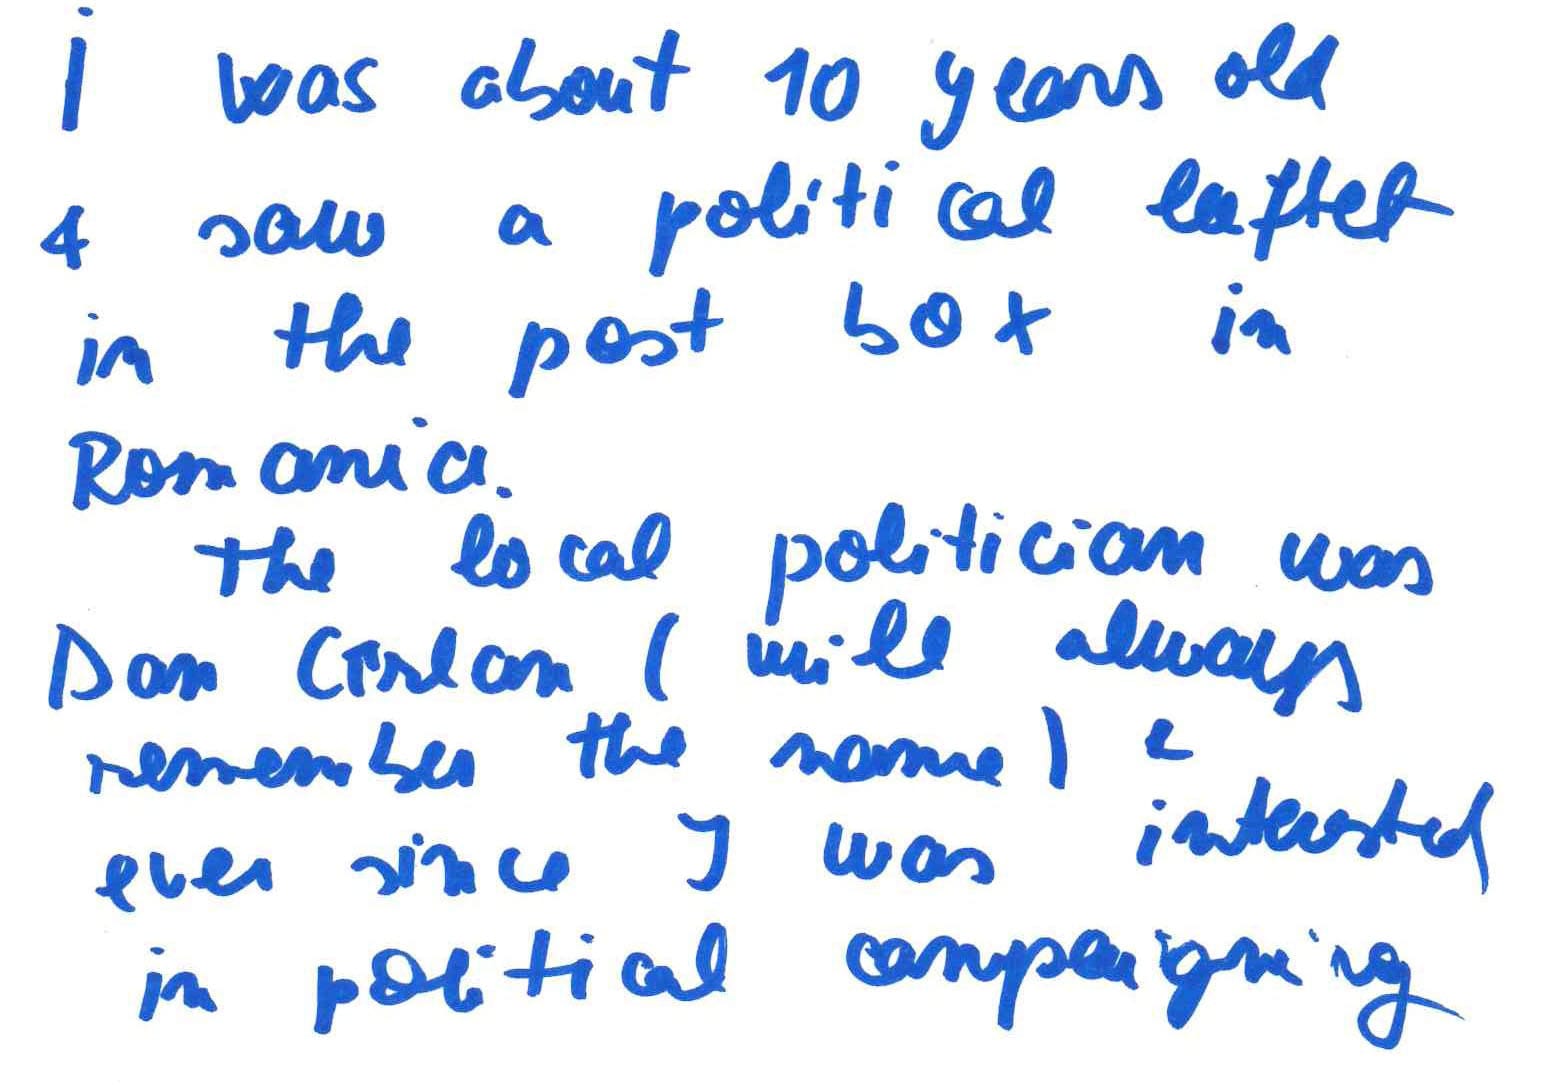 I was about 10 years old
& saw a political leaflet
in the post box in
Romania.
The local politician was
Dan (will always
remember the name) &
ever since I was interested
in political campaigning